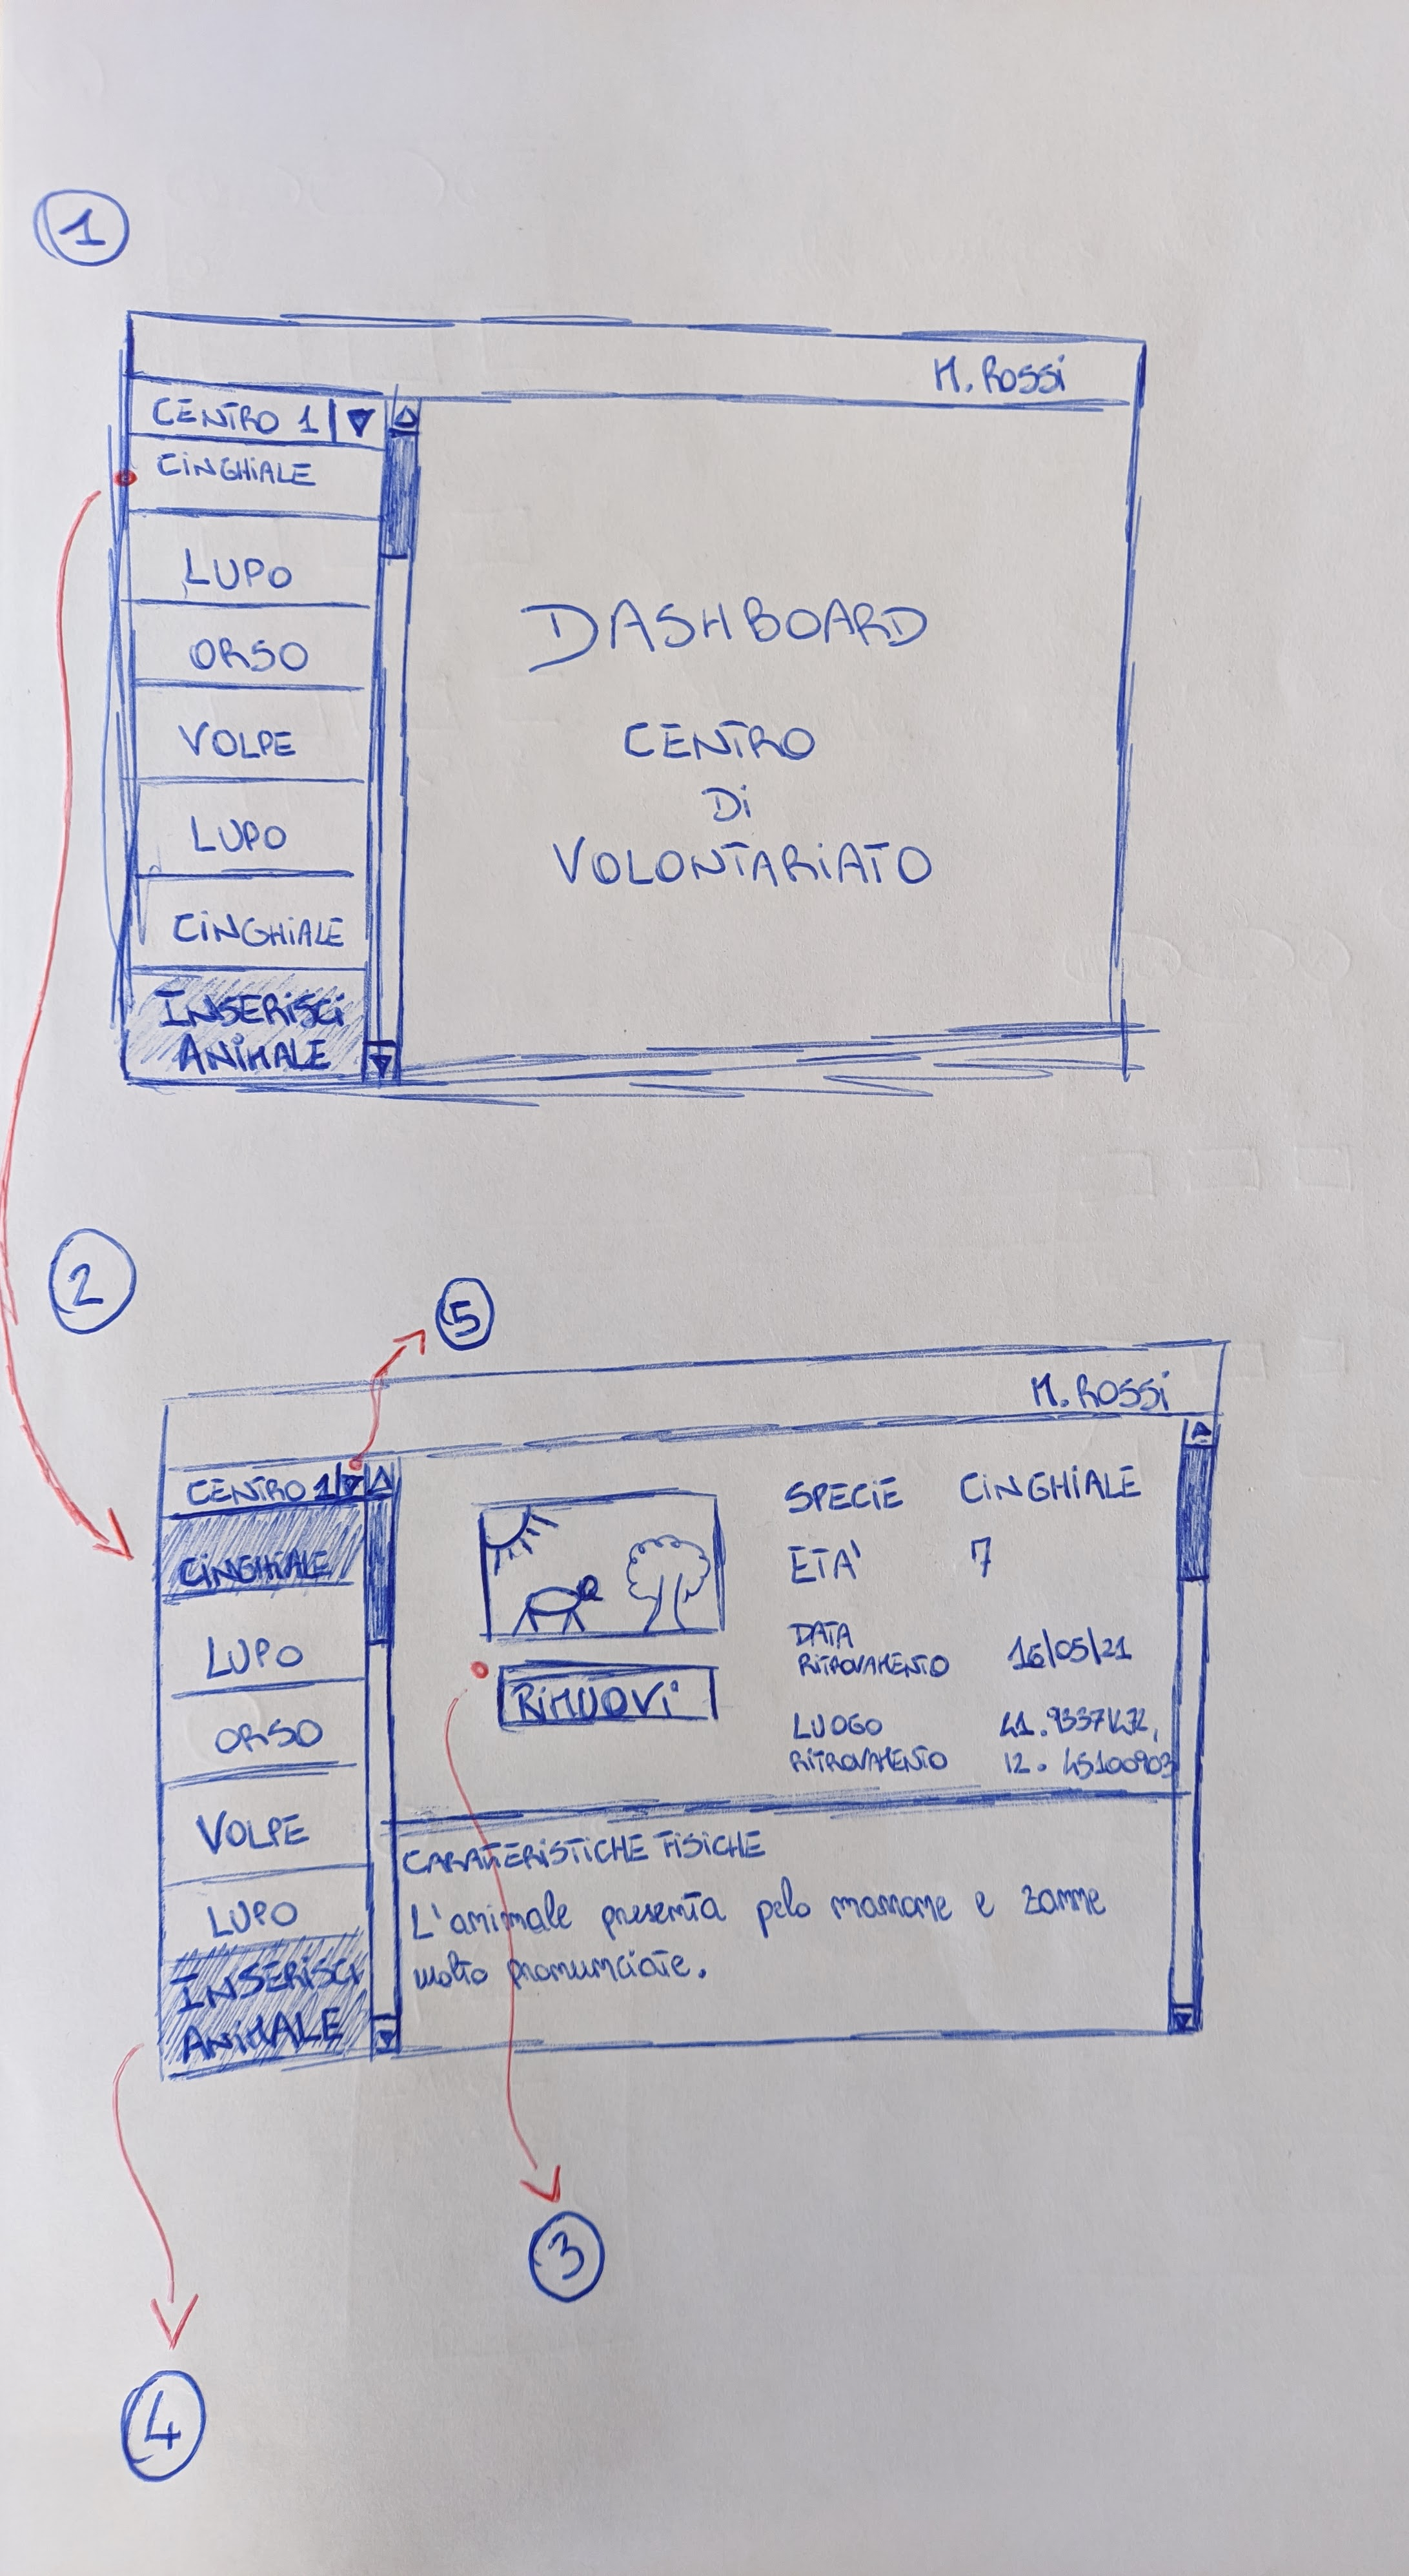 1
M. ROSSi
CENTRO 1
CiNGHiALE
LUPO
ORSO
VOLPE
LUPO
CiNGHiALE
INSERiSCi
ANiMALE
DASHBOARD
CENTRO
Di
VOLONTARiATO
2
5
M. ROSSi
CENTRO 1
CiNGHiALE
LUPO
ORSO
VOLPE
LUPO
INSERiSCi
ANiMALE
RiMUOVi
SPECiE CiNGHiALE
ETA' 7
DATA
RiTROVAMENTO 16/05/21
LUOGO
RiTROVAMENTO 12.45100903
CARATTERiSTiCHE FiSiCHE
L'animale presenta pelo marrone e zanne
molto pronunciate.
3
4